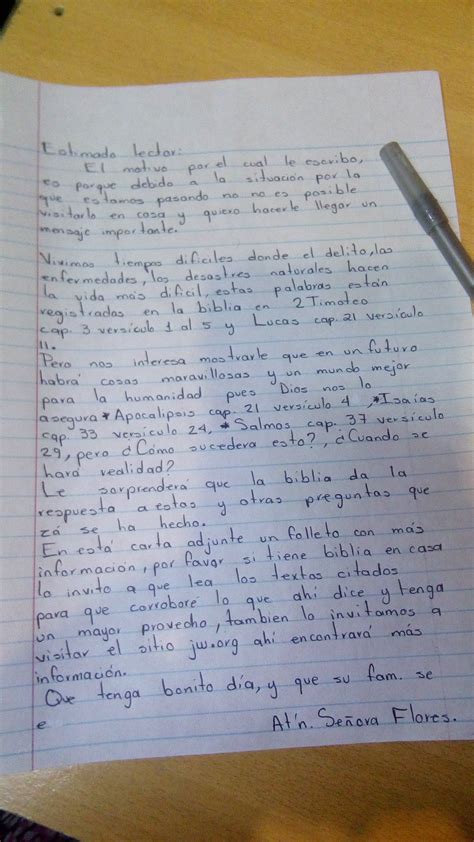 Estimado lector:
El motivo por el cual le escribo,
es porque debido a la situación por la
que estamos pasando no nos es posible
visitarlo en casa y quiero hacerle llegar un
mensaje importante.
Vivimos tiempos dificiles donde el delito, las
enfermedades, los desastres naturales hacen
la vida más dificil, estas palabras están
registradas en la biblia en 2 Timoteo
cap. 3 versículo 1 al 5 y Lucas cap. 21 versículo
11.
Pero nos interesa mostrarle que en un futuro
habrá cosas maravillosas y un mundo mejor
para la humanidad pues Dios nos lo
asegura * Apocalipsis cap. 21 versículo 4, * Isaías
cap. 33 versículo 24, * Salmos cap. 37 versículo
29, pero ¿Cómo sucedera esto?, ¿Cuando se
hará realidad?
Le sorprenderá que la biblia da la
respuesta a estas y otras preguntas que
zá se ha hecho.
En está carta adjunte un folleto con más
información, por favor, si tiene biblia en casa
lo invito a que lea los textos citados
para que corroboré lo que ahí dice y tenga
un mayor provecho, tambien lo invitamos a
visitar el sitio jw.org ahí encontrará más
información.
Que tenga bonito día, y que su fam. se
e
At'n. Señora Flores.